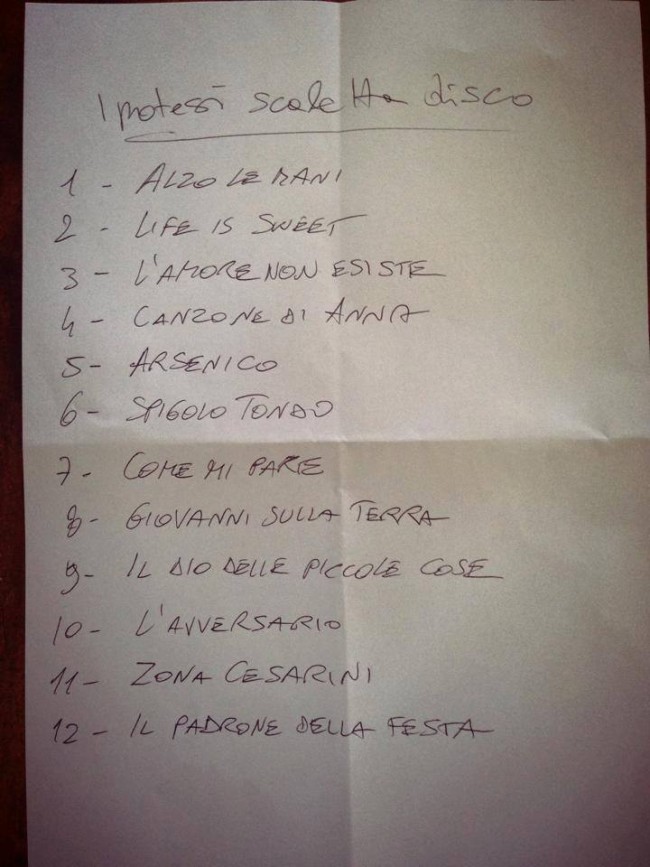 Ipotesi scaletta disco
1 - ALZO LE MANI
2 - LIFE IS SWEET
3 - L'AMORE NON ESISTE
4 - CANZONE DI ANNA
5 - ARSENICO
6 - SPIGOLO TONDO
7 - COME MI PARE
8 - GIOVANNI SULLA TERRA
9 - IL DIO DELLE PICCOLE COSE
10 - L'AVVERSARIO
11 - ZONA CESARINI
12 - IL PADRONE DELLA FESTA